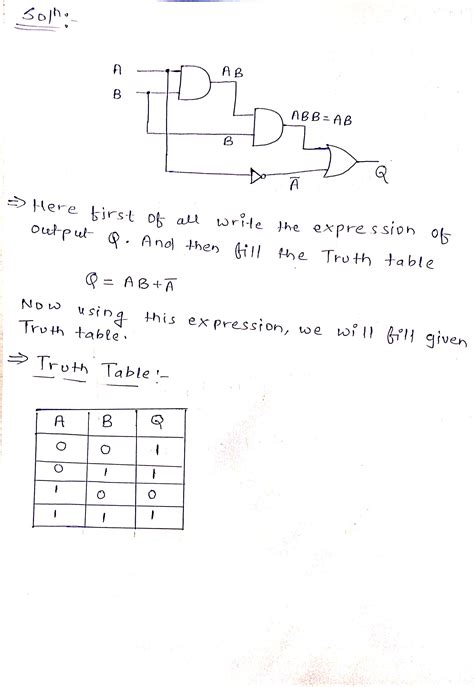 Solⁿ:-
A
AB
B
ABB = AB
B
A̅
Q
⇒ Here first of all write the expression of
output Q. And then fill the Truth table
Q = AB + A̅
Now using this expression, we will fill given
Truth table.
⇒ Truth Table :-
A B Q
0 0 1
0 1 1
1 0 0
1 1 1